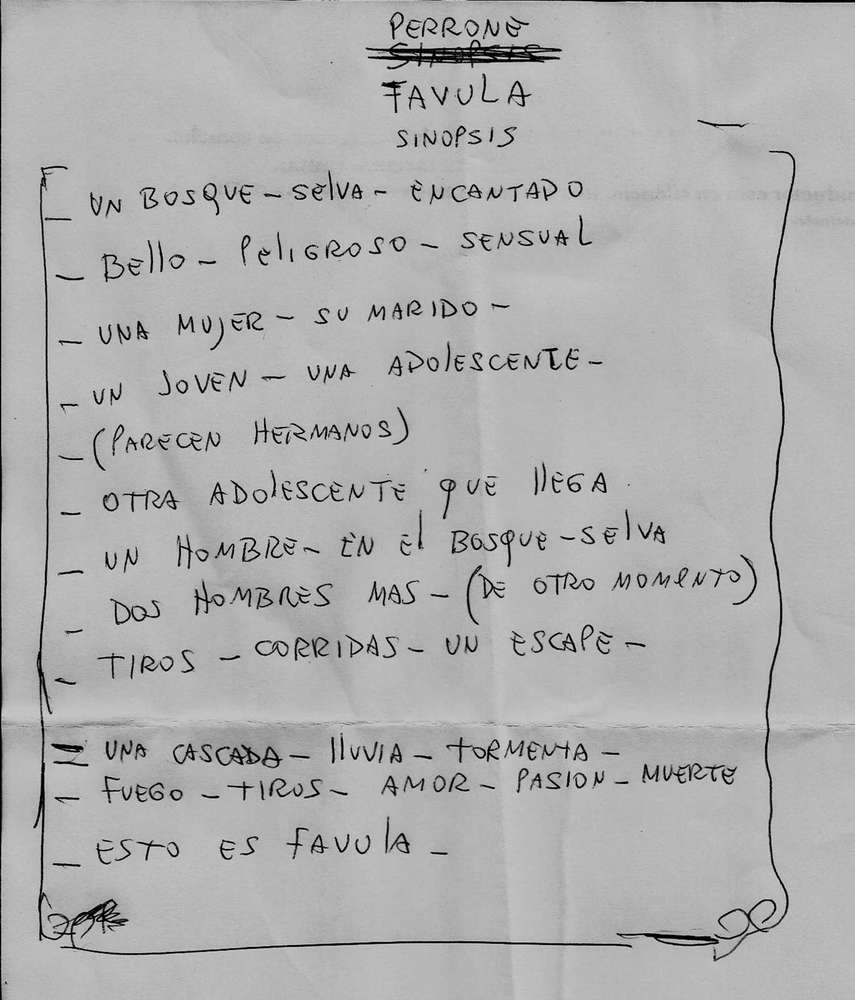 PERRONE
SINOPSIS
FAVULA
SINOPSIS
— UN BOSQUE – SElVA – ENCANTADO
— BEllO – PElIGROSO – SENSUAL
— UNA MUJER – SU MARIDO –
— UN JOVEN – UNA ADOlESCENTE –
— (PARECEN HERMANOS)
— OTRA ADOlESCENTE QUE llEGA
— UN HOMBRE – EN El BOSQUE – SElVA
— DOS HOMBRES MAS – (DE OTRO MOMENTO)
— TIROS – CORRIDAS – UN ESCAPE –
= UNA CASCADA – llUVIA – TORMENTA –
— FUEGO – TIROS – AMOR – PASION – MUERTE
— ESTO ES FAVUlA –